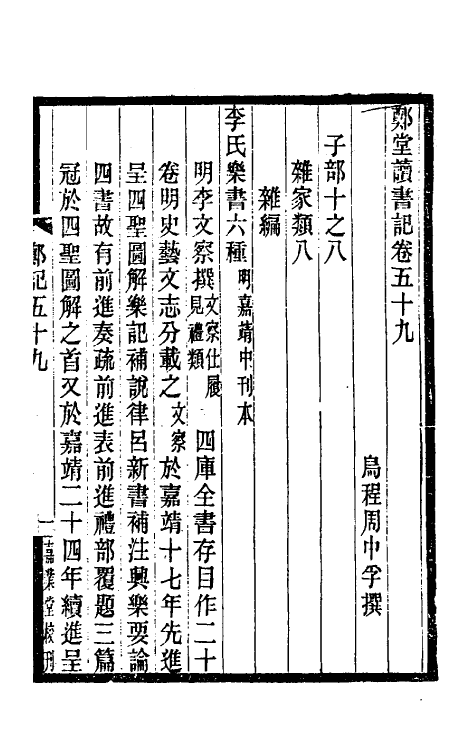 鄭堂讀書記卷五十九
烏程周中孚撰
子部十之八
雜家類八
雜編
李氏樂書六種明嘉靖中刊本
明李文察撰文察仕履見禮類四庫全書存目作二十
卷明史藝文志分載之文察於嘉靖十七年先進
呈四聖圖解樂記補說律呂新書補注興樂要論
四書故有前進奏疏前進表前進禮部覆題三篇
冠於四聖圖解之首又於嘉靖二十四年續進呈
鄭記五十九
一
嘉業堂校刊